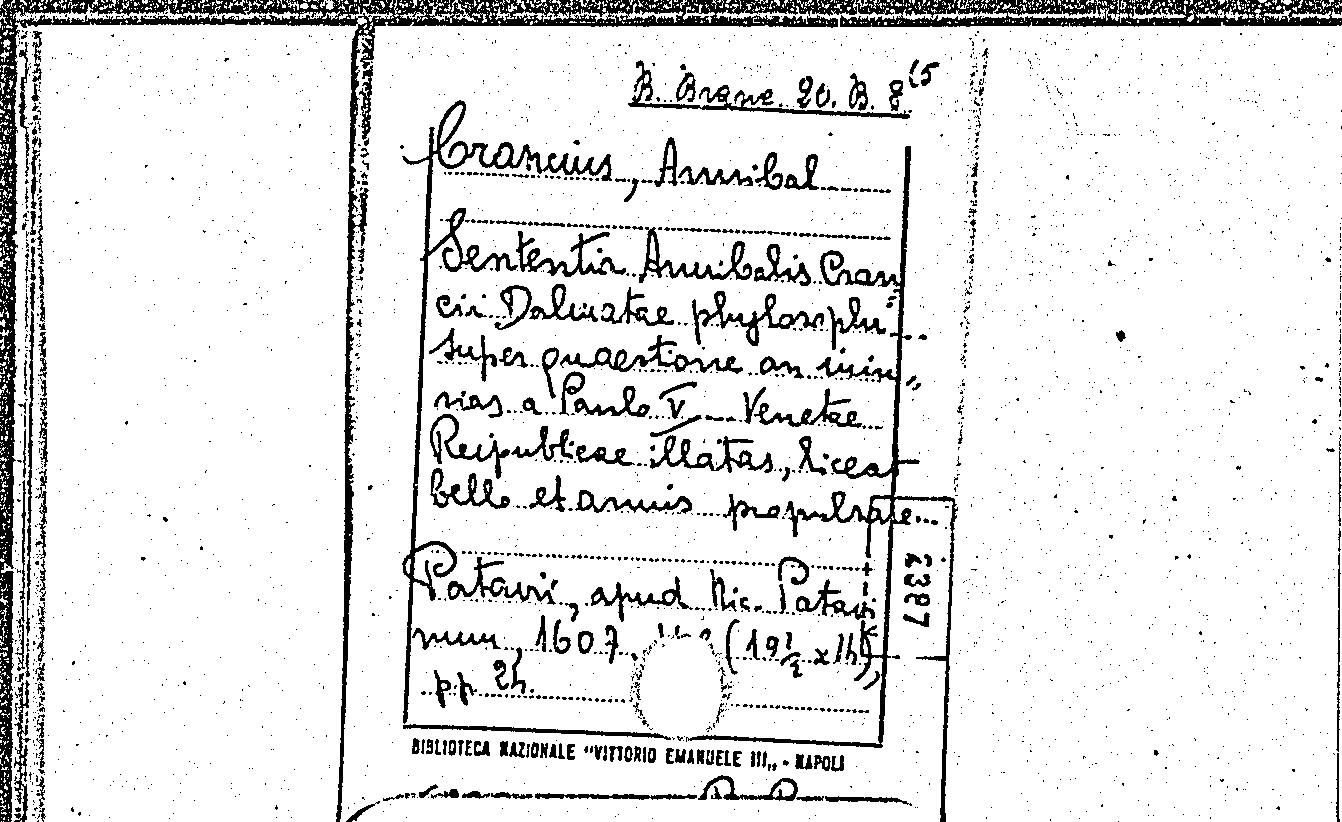 B. Branc. 20. B. 8 15
Crancius, Annibal
Sententia Annibalis Cran„
cii Dalmatae phylosophi...
super quaestione an iniu„
rias a Paulo V Venetae
Reipublicae illatas, liceat
bello et armis propulsare...
Patavii, apud Nic. Patavi
num, 1607. (19 1/2 x 14),
pp 24.
2387
BIBLIOTECA NAZIONALE "VITTORIO EMANUELE III„ - NAPOLI